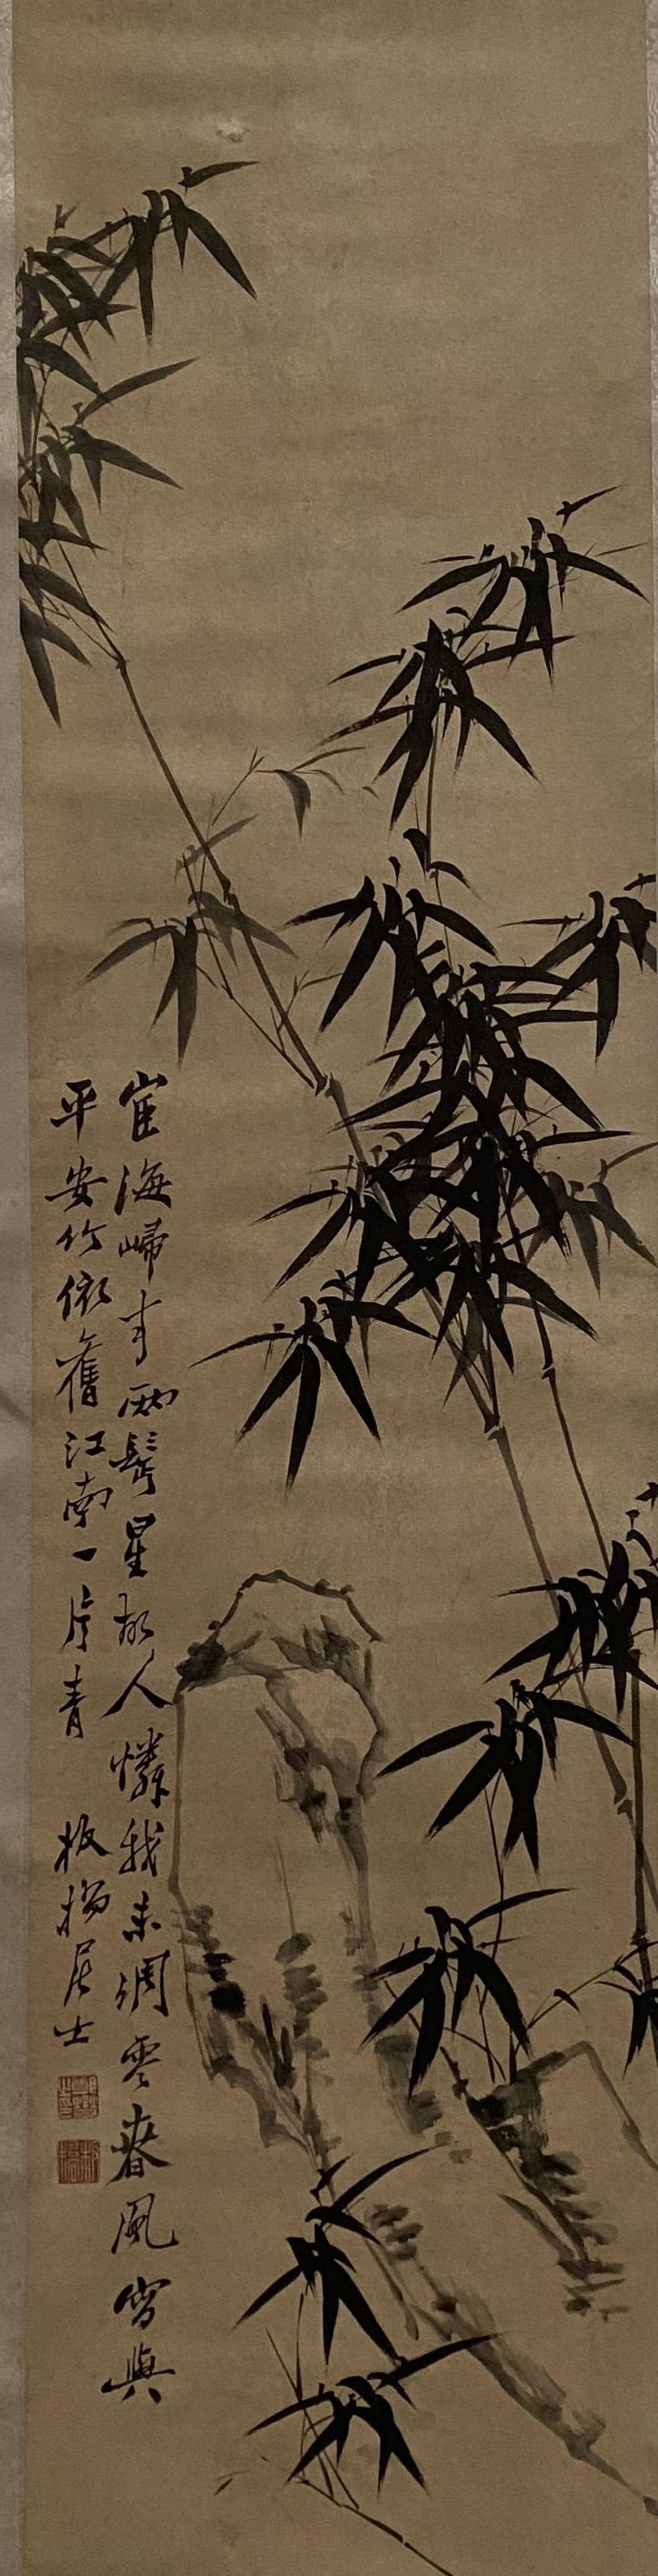 宦海歸來兩鬢星故人憐我未凋零春風寫與
平安竹依舊江南一片青
板橋居士